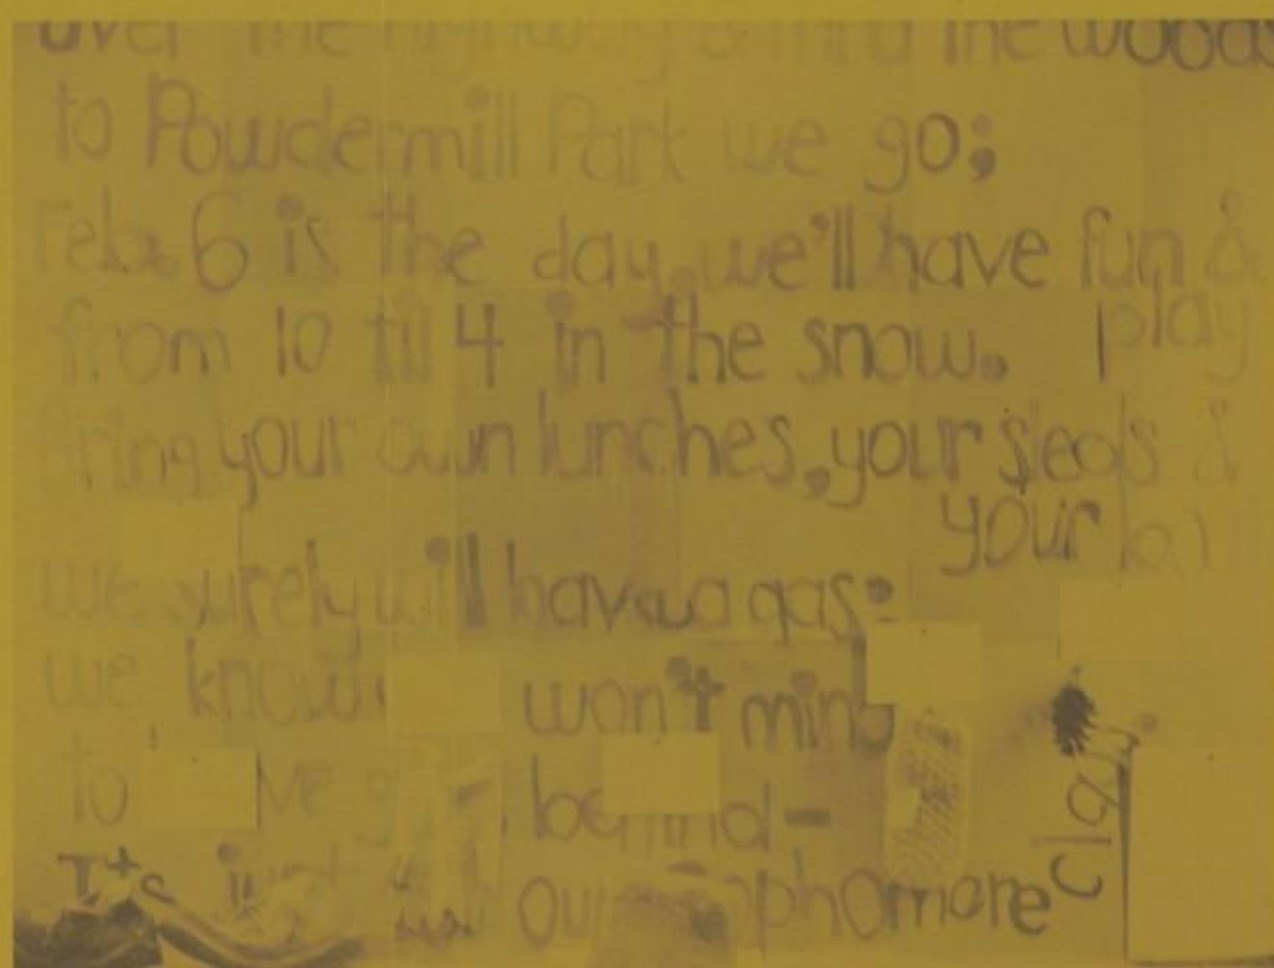 over the highway & thru the woods
to Powdermill Park we go;
Feb. 6 is the day, we'll have fun &
play
from 10 till 4 in the snow.
bring your own lunches, your sleds &
your
we surely will have a gas:
we know won't mind
to behind-
It's just our sophomore
class